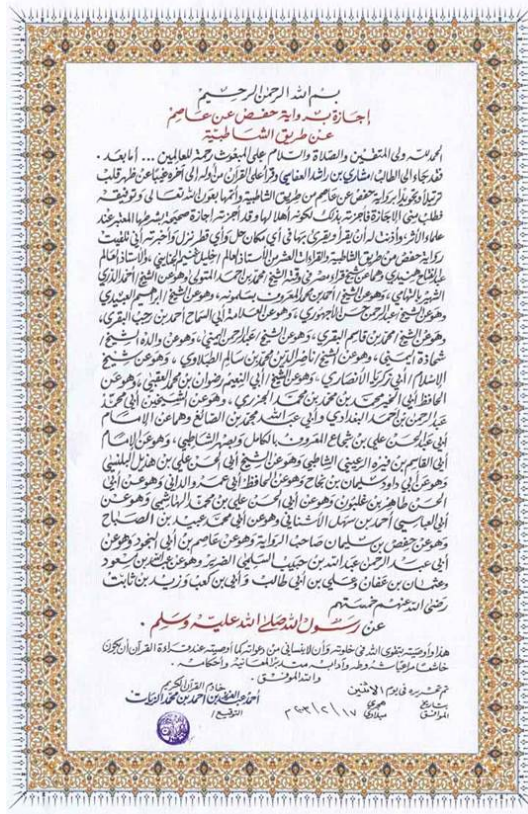 بسم الله الرحمن الرحيم
إجازة برواية حفص عن عاصم
عن طريق الشاطبية
الحمد لله ولي المتقين والصلاة والسلام على المبعوث رحمة للعالمين ... أما بعد .
فقد جاء إلي الطالب / مشاري بن راشد العفاسي وقرأ علي القرآن من أوله إلى آخره غيبا عن ظهر قلب
ترتيلا وتجويدا برواية حفص عن عاصم من طريق الشاطبية وأتمها بعون الله تعالى وتوفيقه
فطلب مني الإجازة فأجزته بذلك لكونه أهلا لها وقد أجزته إجازة صحيحة بشرطها المعتبر عند
علماء الأثر وأذنت له أن يقرأ ويقرئ بها في أي مكان حل وأي قطر نزل وأخبرته أني تلقيت
رواية حفص من طريق الشاطبية والقراءات العشر من الأستاذ العالم / خليل الجنايني ، والأستاذ العالم
عبد الفتاح هنيدي وهما عن شيخ قراء مصر في وقته الشيخ / محمد بن أحمد المتولي وهو عن الشيخ / أحمد الدري
الشهير بالتهامي ، وهو عن الشيخ / أحمد بن محمد المعروف بسلمونه ، وهو عن الشيخ / إبراهيم العبيدي
وهو عن الشيخ / عبد الرحمن بن حسن الأجهوري ، وهو عن العلامة أبي السماح أحمد بن رجب البقري ،
وهو عن الشيخ / محمد بن قاسم البقري ، وهو عن الشيخ / عبد الرحمن اليمني ، وهو عن والده الشيخ /
شحاذة اليمني ، وهو عن الشيخ / ناصر الدين محمد بن سالم الطبلاوي ، وهو عن شيخ
الإسلام / أبي زكريا الأنصاري ، وهو عن الشيخ / أبي النعيم رضوان بن محمد العقبي ، وهو عن
الحافظ أبي الخير محمد بن محمد بن محمد الجزري ، وهو عن الشيخين أبي محمد
عبد الرحمن بن أحمد البغدادي وأبي عبد الله محمد بن الصائغ وهما عن الإمام
أبي الحسن علي بن شجاع المعروف بالكامل وبصهر الشاطبي ، وهو عن الإمام
أبي القاسم بن فيره الرعيني الشاطبي وهو عن الشيخ أبي الحسن علي بن هذيل البلنسي
وهو عن أبي داود سليمان بن نجاح وهو عن الحافظ / أبي عمرو الداني وهو عن أبي
الحسن طاهر بن غلبون وهو عن أبي الحسن علي بن محمد الهاشمي وهو عن
أبي العباس أحمد بن سهل الأشناني وهو عن أبي محمد عبيد بن الصباح
وهو عن حفص بن سليمان صاحب الرواية وهو عن عاصم بن أبي النجود وهو عن
أبي عبد الرحمن عبد الله بن حبيب السلمي الضرير وهو عن عبد الله بن مسعود
وعثمان بن عفان وعلي بن أبي طالب وأبي بن كعب وزيد بن ثابت
رضي الله عنهم خمستهم
عن رسول الله صلى الله عليه وسلم .
هذا وأوصيته بتقوى الله في خلوته وأن لا ينساني من دعواته كما أوصيته عند قراءة القرآن أن يكون
خاشعا مراعيا شروطه وآدابه متدبرا لمعانيه وأحكامه .
والله الموفق .
تم تحريره في يوم الاثنين
خادم القرآن الكريم
بتاريخ هجري
أحمد عبد العزيز بن أحمد بن محمد الزيات
الموافق ميلادي
التوقيع /